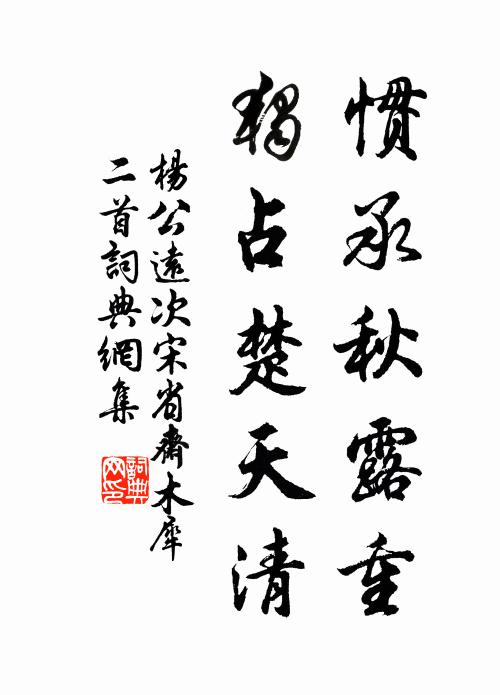 慣承秋露重
獨占楚天清
楊公遠次宋省齋木犀
二首詞典網集
詞典
网印